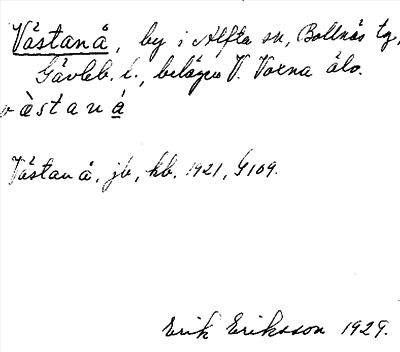 Västanå, by i Alfta sn, Bollnäs tg,
Gävleb. l., belägen V. Voxna älv.
västanå
Västanå, jb, hb. 1921, G109.
Erik Eriksson 1929.